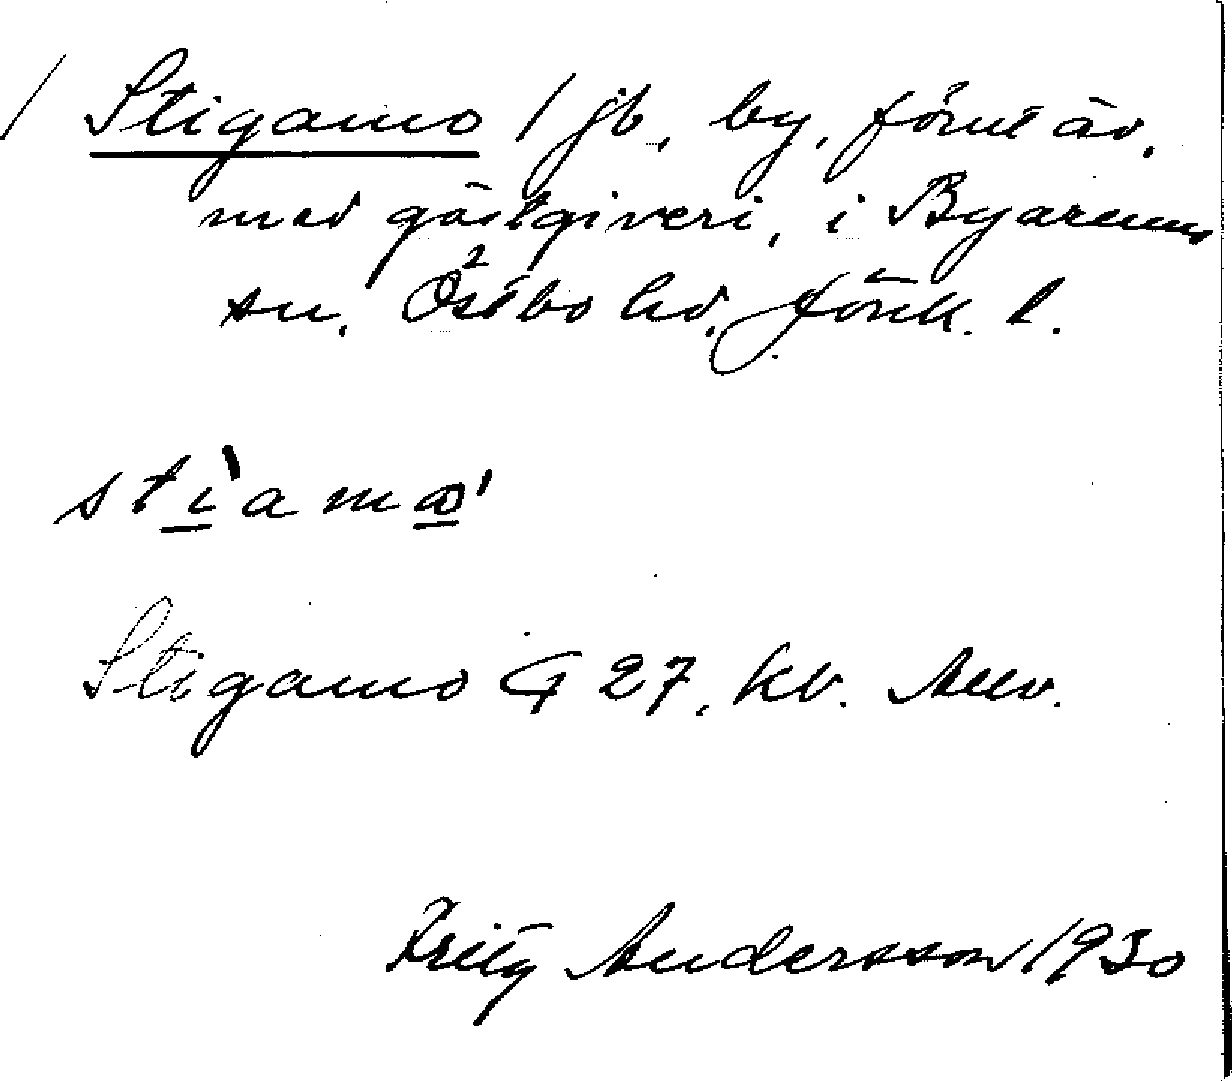 / Stigamo / jb, by, förut äv.
med gästgiveri, i Byarums
sn, Östbo hd, Jönk. l.
stìamɷ'
Stigamo G 27, kv. Anv.
Fritz Andersson 1930